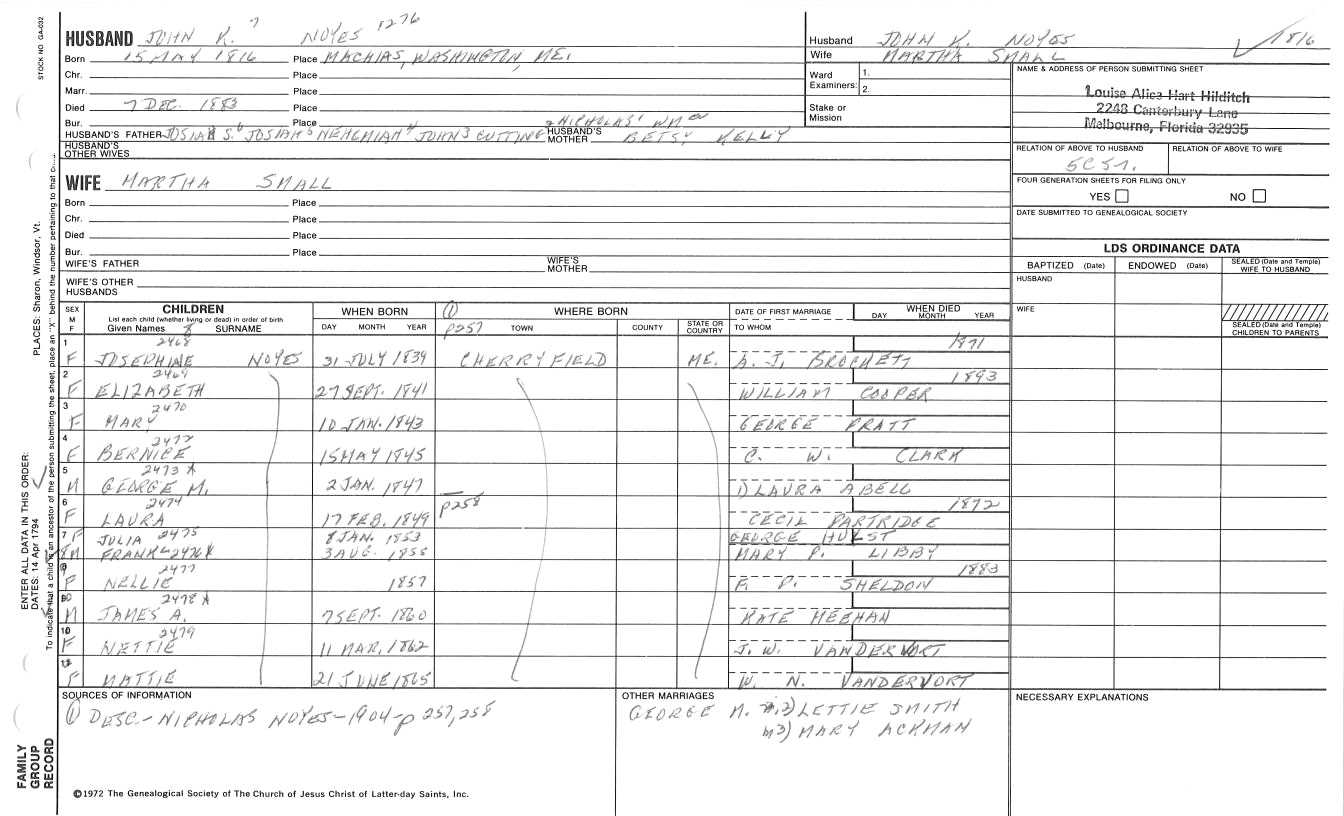 STOCK NO. GA-032
PLACES: Sharon, Windsor, Vt.
ENTER ALL DATA IN THIS ORDER:
DATES: 14 Apr 1794
To indicate that a child is an ancestor of the person submitting the sheet, place an "X" behind the number pertaining to that
FAMILY GROUP RECORD
HUSBAND JOHN K. 7 NOYES 1276
Born 15 MAY 1816 Place MACHIAS, WASHINGTON, ME.
Chr. Place
Marr. Place
Died 7 DEC. 1883 Place
Bur. Place
HUSBAND'S FATHER JOSIAH S.6 JOSIAH5 NEHEMIAH4 JOHN3 CUTTING2 NICHOLAS1 WM EN HUSBAND'S MOTHER BETSY KELLY
HUSBAND'S OTHER WIVES
WIFE MARTHA SMALL
Born Place
Chr. Place
Died Place
Bur. Place
WIFE'S FATHER WIFE'S MOTHER
WIFE'S OTHER HUSBANDS
Husband JOHN K. NOYES 1816
Wife MARTHA SMALL
Ward Examiners: 1. 2.
Stake or Mission
NAME & ADDRESS OF PERSON SUBMITTING SHEET
Louise Alice Hart Hilditch
2248 Canterbury Lane
Melbourne, Florida 32935
RELATION OF ABOVE TO HUSBAND RELATION OF ABOVE TO WIFE
5C5r.
FOUR GENERATION SHEETS FOR FILING ONLY
YES NO
DATE SUBMITTED TO GENEALOGICAL SOCIETY
LDS ORDINANCE DATA
BAPTIZED (Date) ENDOWED (Date) SEALED (Date and Temple) WIFE TO HUSBAND
HUSBAND
WIFE
SEALED (Date and Temple) CHILDREN TO PARENTS
SEX M F CHILDREN WHEN BORN WHERE BORN DATE OF FIRST MARRIAGE WHEN DIED
List each child (whether living or dead) in order of birth
Given Names 8 SURNAME DAY MONTH YEAR ① p257 TOWN COUNTY STATE OR COUNTRY TO WHOM DAY MONTH YEAR
1 F 2468 JOSEPHINE NOYES 31 JULY 1839 CHERRYFIELD ME. A. J. BROCKETT 1871
2 F 2469 ELIZABETH 27 SEPT. 1841 WILLIAM COOPER 1893
3 F 2470 MARY 10 JAN. 1843 GEORGE PRATT
4 F 2472 BERNICE 15 MAY 1845 C. W. CLARK
5 M 2473 X GEORGE M. 2 JAN. 1847 1) LAURA ABELL
6 F 2474 LAURA 17 FEB. 1849 p258 CECIL PARTRIDGE 1872
7 F JULIA 2475 8 JAN. 1853 GEORGE HULST
8 M FRANK L 2476 X 3 AUG. 1855 MARY P. LIBBY
9 F 2477 NELLIE 1857 F. P. SHELDON 1883
10 M 2478 X JAMES A. 7 SEPT. 1860 KATE MEEHAN
F 2479 NETTIE 11 MAR. 1862 J. W. VANDERVORT
12 F MATTIE 21 JUNE 1865 W. N. VANDERVORT
SOURCES OF INFORMATION
① DESC.- NICHOLAS NOYES-1904-p 257, 258
OTHER MARRIAGES
GEORGE M. m2) LETTIE SMITH
m3) MARY ACKMAN
NECESSARY EXPLANATIONS
©1972 The Genealogical Society of The Church of Jesus Christ of Latter-day Saints, Inc.